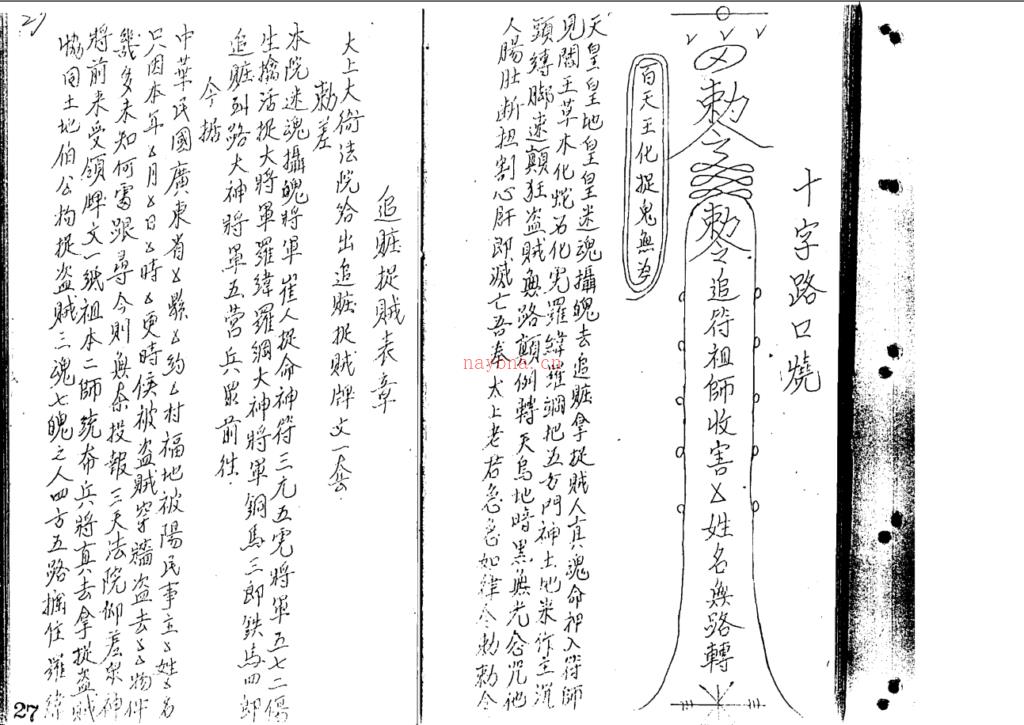 十字路口燒
敕令
敕令追符祖師收害㐅姓名無路轉
百天王化捉鬼無為
天皇皇地皇皇迷魂攝魄去追賍拿捉賊人真魂命把入符師
見閻王草木化蛇石化鬼羅緯羅綱把五方門神土地來作主沉
頭縛脚速顛狂盜賊無路顛倒轉天烏地暗黑無光念咒祂
人腸肚斷扭割心肝即滅亡吾奉太上老君急急如律令勅勅令
追賍捉賊表章
大上大倚法院給出追賍捉賊牌文一套
勅差
本院迷魂攝魄將軍崔人捉命神符三元五鬼將軍五七二傷
生擒活捉大將軍羅緯羅綱大神將軍銅馬三郎鉄馬四郎
追賍到路大神將軍五营兵眾前往
今据
中華民國廣東省㐅縣㐅約㐅村福地被陽民事主㐅姓㐅名
只因本年㐅月㐅日㐅時㐅更時候被盜賊穿牆盜去㐅㐅物件
幾多未知何處跟尋今則無奈投報三天法院仰差眾神
將前來受領牌文一紙祖本二師統布兵將真去拿捉盜賊
協同土地伯公拘捉盜賊三魂七魄之人四方五路攔住羅緯
27
naybna.cn